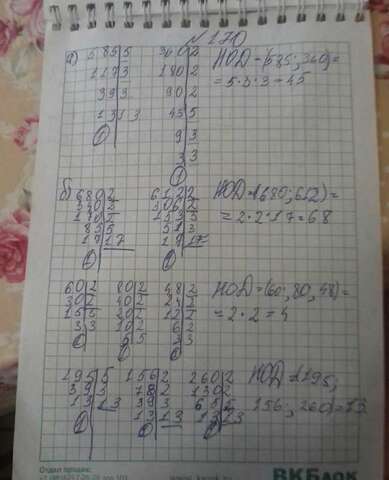 № 170
а) 585 5 360 2 НОД = (585; 360) =
117 3 180 2 = 5·3·3 = 45
39 3 90 2
13 13 45 5
1 9 3
3 3
1
б) 680 2 612 2 НОД = (680; 612) =
340 2 306 2 = 2·2·17 = 68
170 2 153 3
85 5 51 3
17 17 17 17
1 1
60 2 80 2 48 2 НОД = (60; 80, 48) =
30 2 40 2 24 2 = 2·2 = 4
15 5 20 2 12 2
3 3 10 2 6 2
1 5 5 3 3
1 1
195 5 156 2 260 2 НОД = (195;
39 3 78 2 130 2 156; 260) = 13
13 13 39 3 65 5
1 13 13 13 13
1 1
Отдел продаж:
ВКБлок